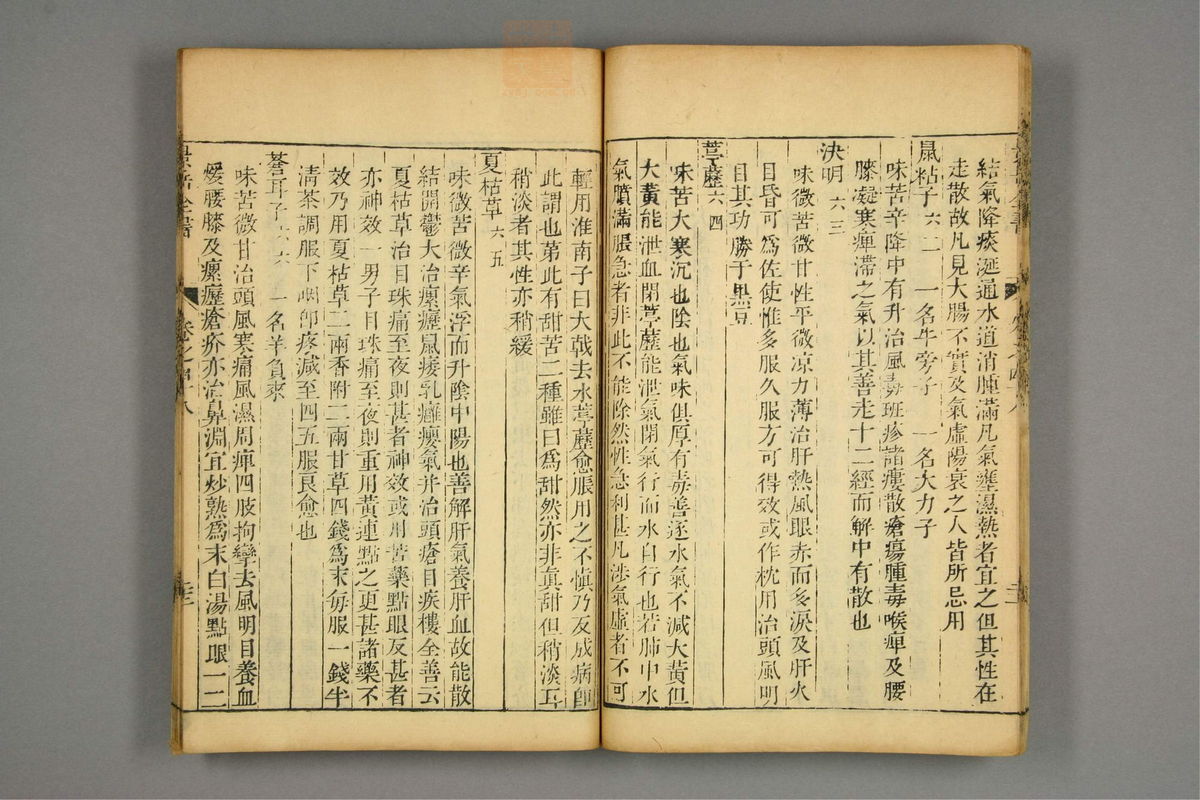 結氣降痰涎通水道消腫滿凡氣壅濕熱者宜之但其性在
走散故凡見大腸不實及氣虛陽衰之人皆所忌用
鼠粘子 六二 一名牛旁子 一名大力子
味苦辛降中有升治風毒班疹諸瘻散瘡瘍腫毒喉痺及腰
膝凝寒痺滯之氣以其善走十二經而解中有散也
決明 六三
味微苦微甘性平微凉力薄治肝熱風眼赤而多淚及肝火
目昏可為佐使惟多服久服方可得效或作枕用治頭風明
目其功勝于黑豆
葶藶 六四
味苦大寒沉也陰也氣味俱厚有毒善逐水氣不減大黃但
大黃能泄血閉葶藶能泄氣閉氣行而水自行也若肺中水
氣噴滿脹急者非此不能除然性急利甚凡涉氣虛者不可
輕用淮南子曰大戟去水葶藶愈脹用之不慎乃反成病卽
此謂也第此有甜苦二種雖曰為甜然亦非真甜但稍淡耳
稍淡者其性亦稍緩
夏枯草 六五
味微苦微辛氣浮而升陰中陽也善解肝氣養肝血故能散
結開鬱大治瘰癧鼠瘻乳癰癭氣并治頭瘡目疾樓全善云
夏枯草治目珠痛至夜則甚者神效或用苦藥點眼反甚者
亦神效一男子目珠痛至夜則重用黃連點之更甚諸藥不
效乃用夏枯草二兩香附二兩甘草四錢為末每服一錢半
清茶調服下咽卽疼減至四五服良愈也
蒼耳子 六六 一名羊負來
味苦微甘治頭風寒痛風濕周痺四肢拘攣去風明目養血
煖腰膝及瘰癧瘡疥亦治鼻淵宜炒熟為末白湯點服一二
景岳全書 卷之四十八